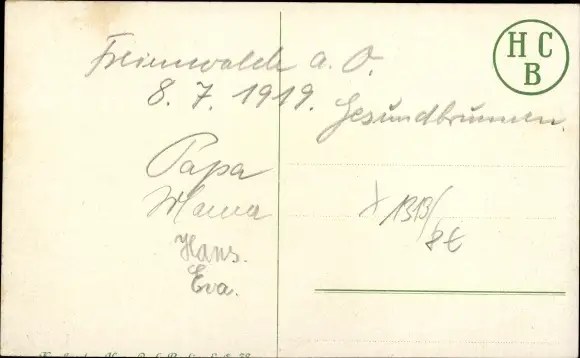 Freienwalde a. O.
8. 7. 1919. Gesundbrunnen.
Papa
Mama
Hans.
Eva.
H C
B
8€